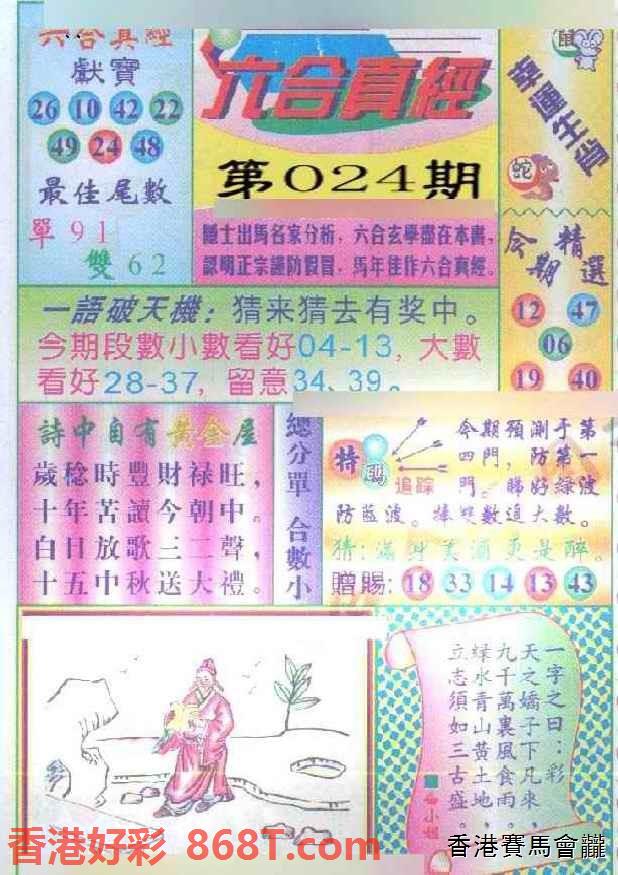 六合真經
獻寶
26 10 42 22
49 24 48
最佳尾數
單 91
雙 62
六合真經
第024期
隱士出馬名家分析，六合玄學盡在本書，
認明正宗謹防假冒，馬年佳作六合真經。
鼠
幸運生肖
蛇
今期精選
12 47
06
19 40
一語破天機：猜来猜去有奖中。
今期段數小數看好04-13，大數
看好28-37，留意34、39。
詩中自有黃金屋
歲稔時豐財禄旺，
十年苦讀今朝中。
白日放歌三二聲，
十五中秋送大禮。
總分單 合數小
特碼
追踪
今期預測于第
四門，防第一
門。睇好綠波
防藍波。捧雙數追大數。
猜：滿斗美酒更是醉。
贈賜：18 33 14 13 43
一字之曰：彩
天之嬌子下凡來，
九千萬裏風食雨，
緑水青山黄土地，
立志須如三古盛。
小姐
香港好彩 868T.com
香港賽馬會